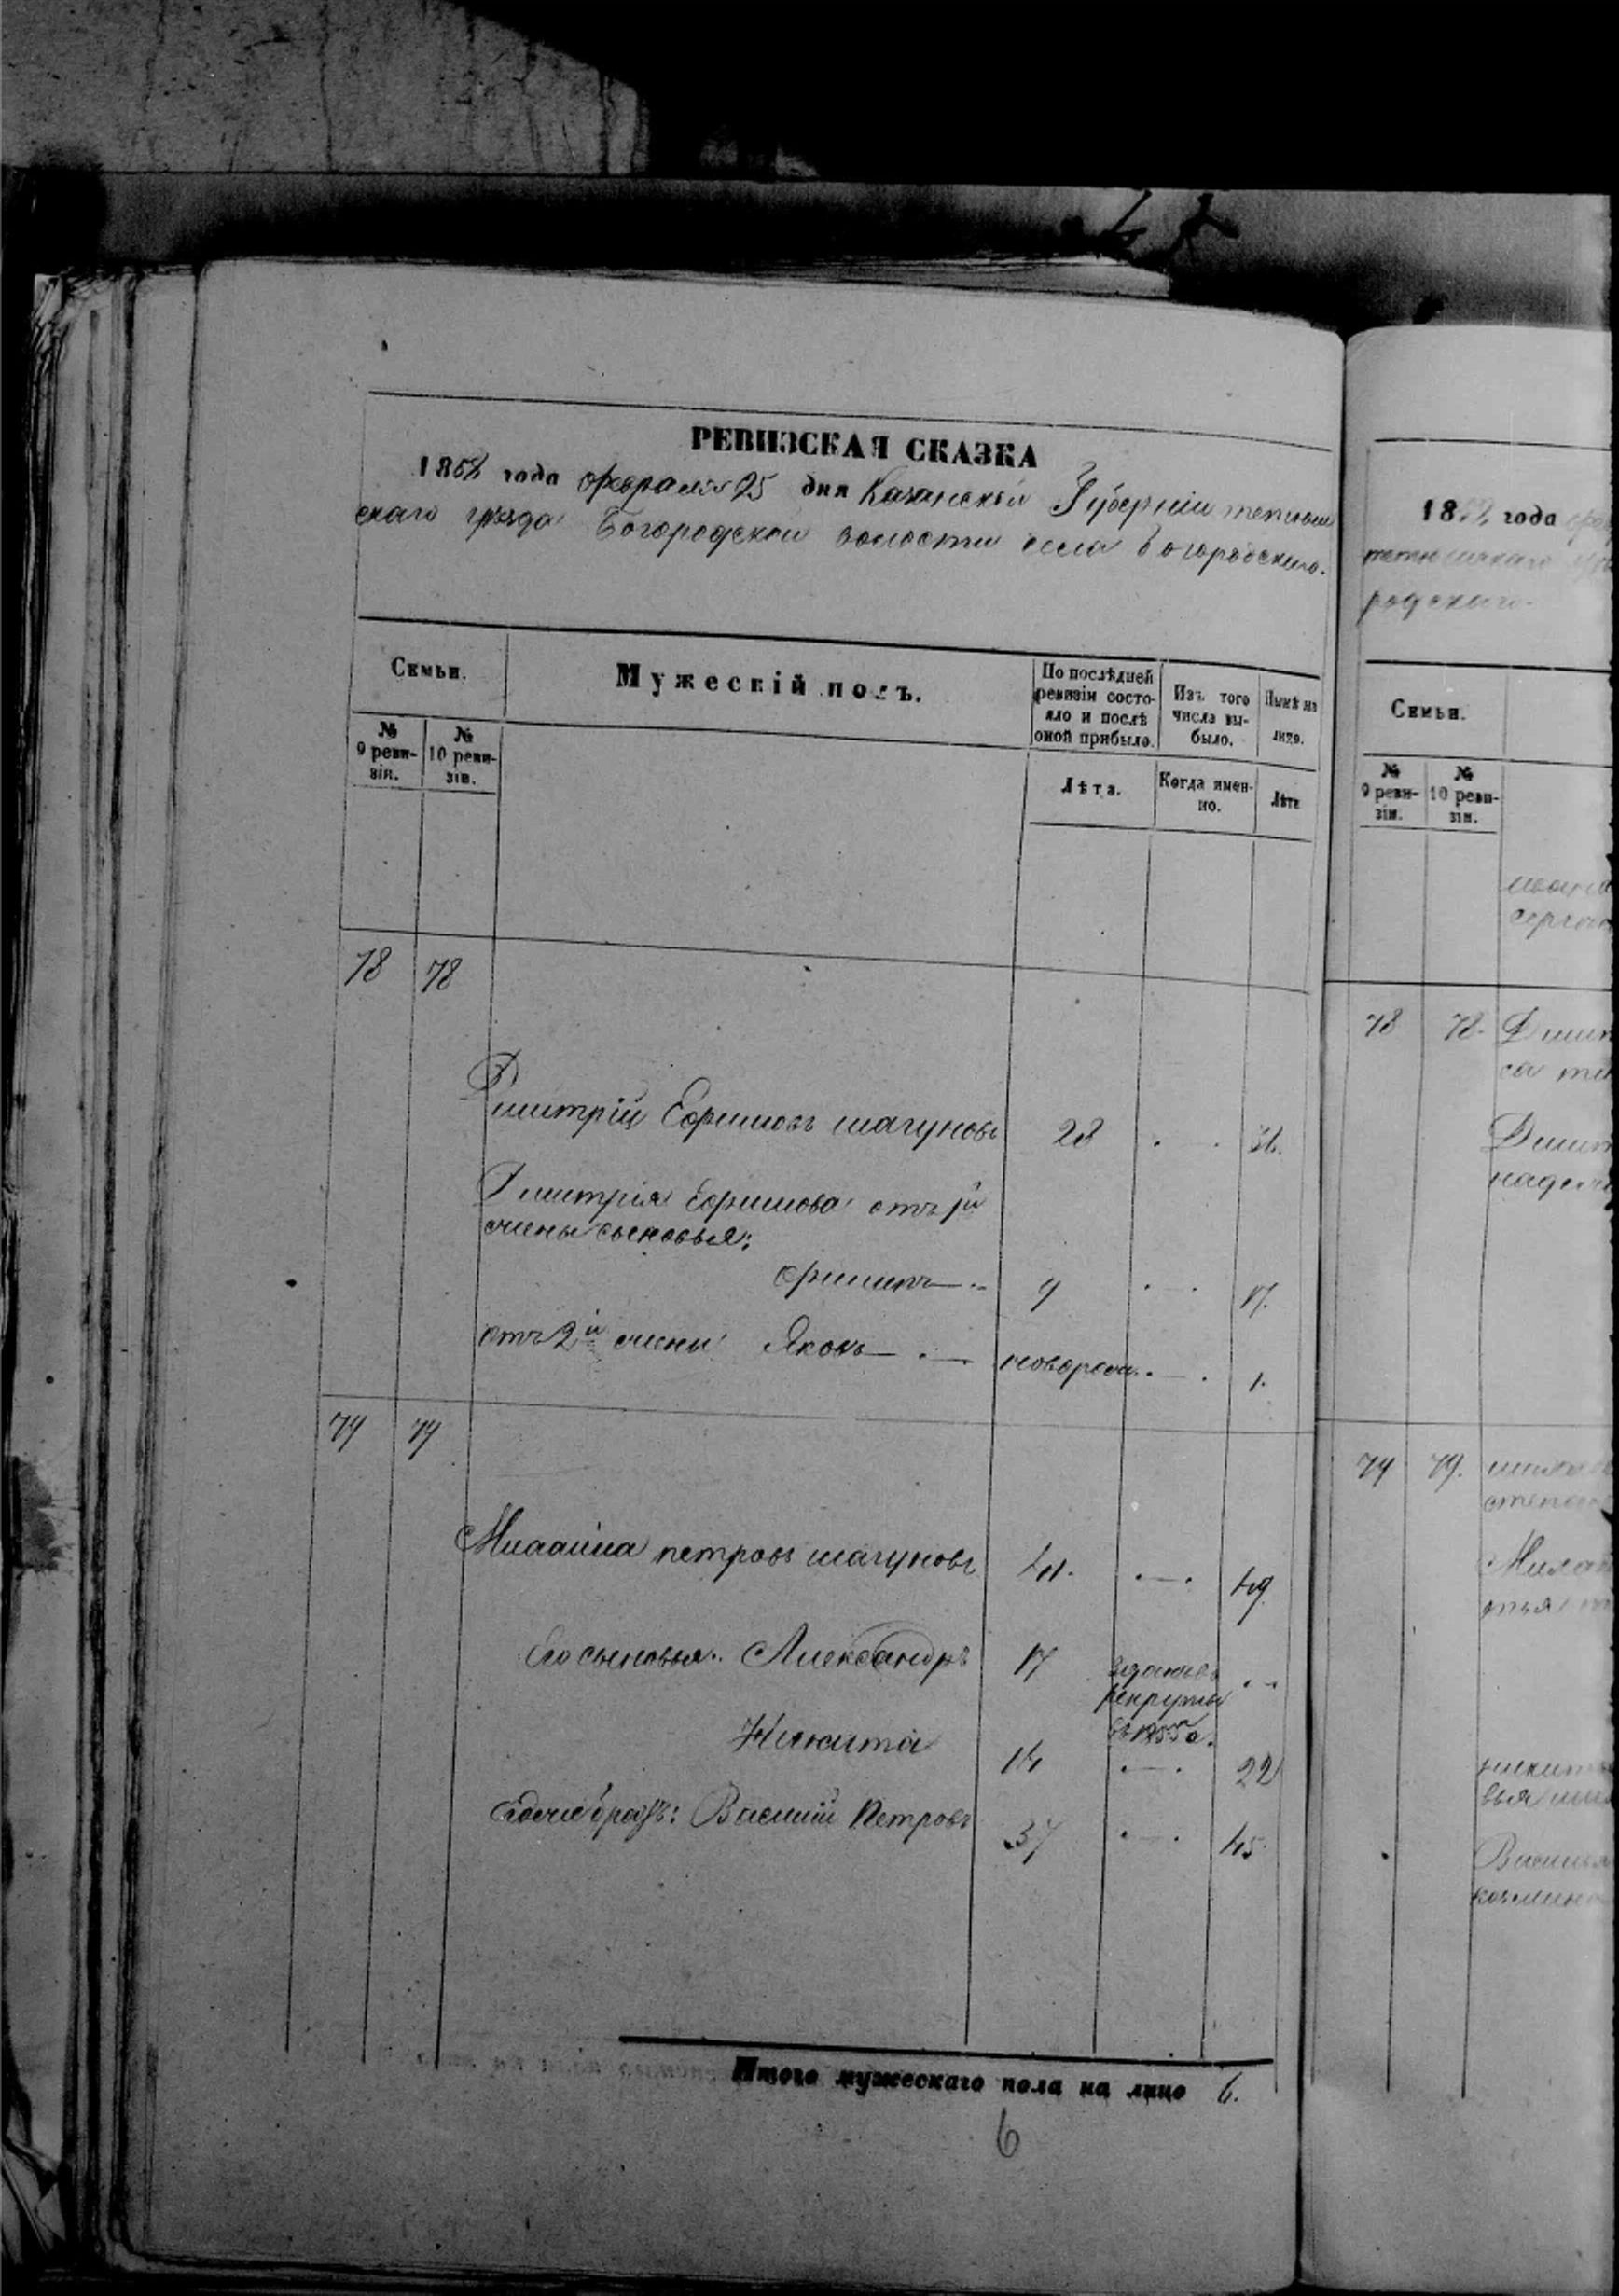 РЕВИЗСКАЯ СКАЗКА
1858 года февраля 25 дня Казанской Губерніи тетюш
скаго уѣзда Богородской волости села Богородскаго.
Семьи.
Мужескій полъ.
По послѣдней ревизіи состояло и послѣ оной прибыло.
Изъ того числа выбыло.
Нынѣ на лицо.
№ 9 ревизіи.
№ 10 ревизіи.
Лѣта.
Когда именно.
Лѣта
78 78
Дмитрій Ефимовъ шагуновъ 28 . . 36.
Дмитрія Ефимова отъ 1й
жены сыновья:
Филипъ 9 . . 17.
отъ 2й жены Яковъ новорож. . 1.
79 79
петровъ шагуновъ 41. . 49.
Его сыновья: Александръ 17
рекруты
въ 1855 г.
Никита 14 . . 22
братъ: Василій Петровъ 37 . . 45.
Итого мужескаго пола на лицо 6.
6
18 года
родскаго.
Семьи.
№ 9 ревизіи.
№ 10 ревизіи.
78 78.
79 79.